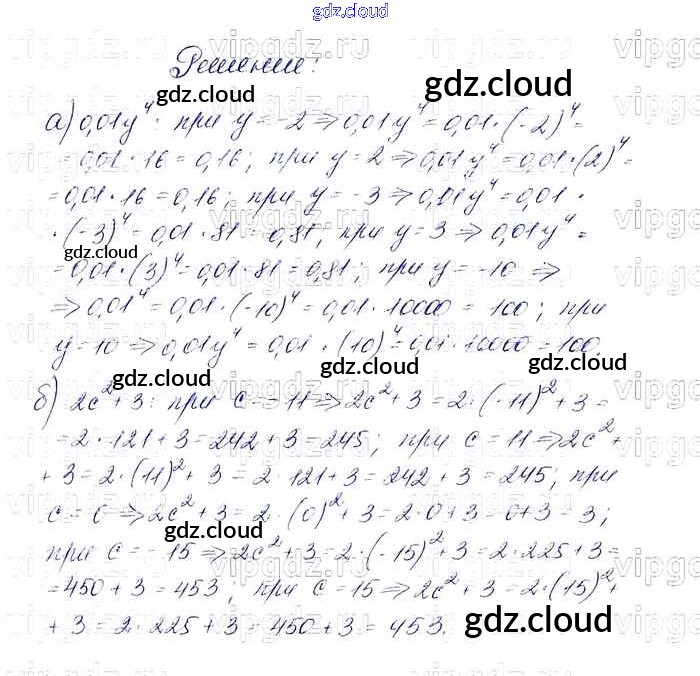 gdz.cloud
Решение:
gdz.cloud
gdz.cloud
а) 0,01y⁴: при y = -2 ⇒ 0,01y⁴ = 0,01·(-2)⁴ =
= 0,01·16 = 0,16; при y = 2 ⇒ 0,01y⁴ = 0,01·(2)⁴ =
= 0,01·16 = 0,16; при y = -3 ⇒ 0,01y⁴ = 0,01·
·(-3)⁴ = 0,01·81 = 0,81; при y = 3 ⇒ 0,01y⁴ =
gdz.cloud
= 0,01·(3)⁴ = 0,01·81 = 0,81; при y = -10 ⇒
⇒ 0,01⁴ = 0,01·(-10)⁴ = 0,01·10000 = 100; при
y = 10 ⇒ 0,01y⁴ = 0,01·(10)⁴ = 0,01·10000 = 100.
gdz.cloud gdz.cloud gdz.cloud
б) 2c² + 3: при c = -11 ⇒ 2c² + 3 = 2·(-11)² + 3 =
= 2·121 + 3 = 242 + 3 = 245; при c = 11 ⇒ 2c² +
+ 3 = 2·(11)² + 3 = 2·121 + 3 = 242 + 3 = 245; при
c = 0 ⇒ 2c² + 3 = 2·(0)² + 3 = 2·0 + 3 = 0 + 3 = 3;
gdz.cloud
при c = -15 ⇒ 2c² + 3 = 2·(-15)² + 3 = 2·225 + 3 =
= 450 + 3 = 453; при c = 15 ⇒ 2c² + 3 = 2·(15)² +
+ 3 = 2·225 + 3 = 450 + 3 = 453.
gdz.cloud